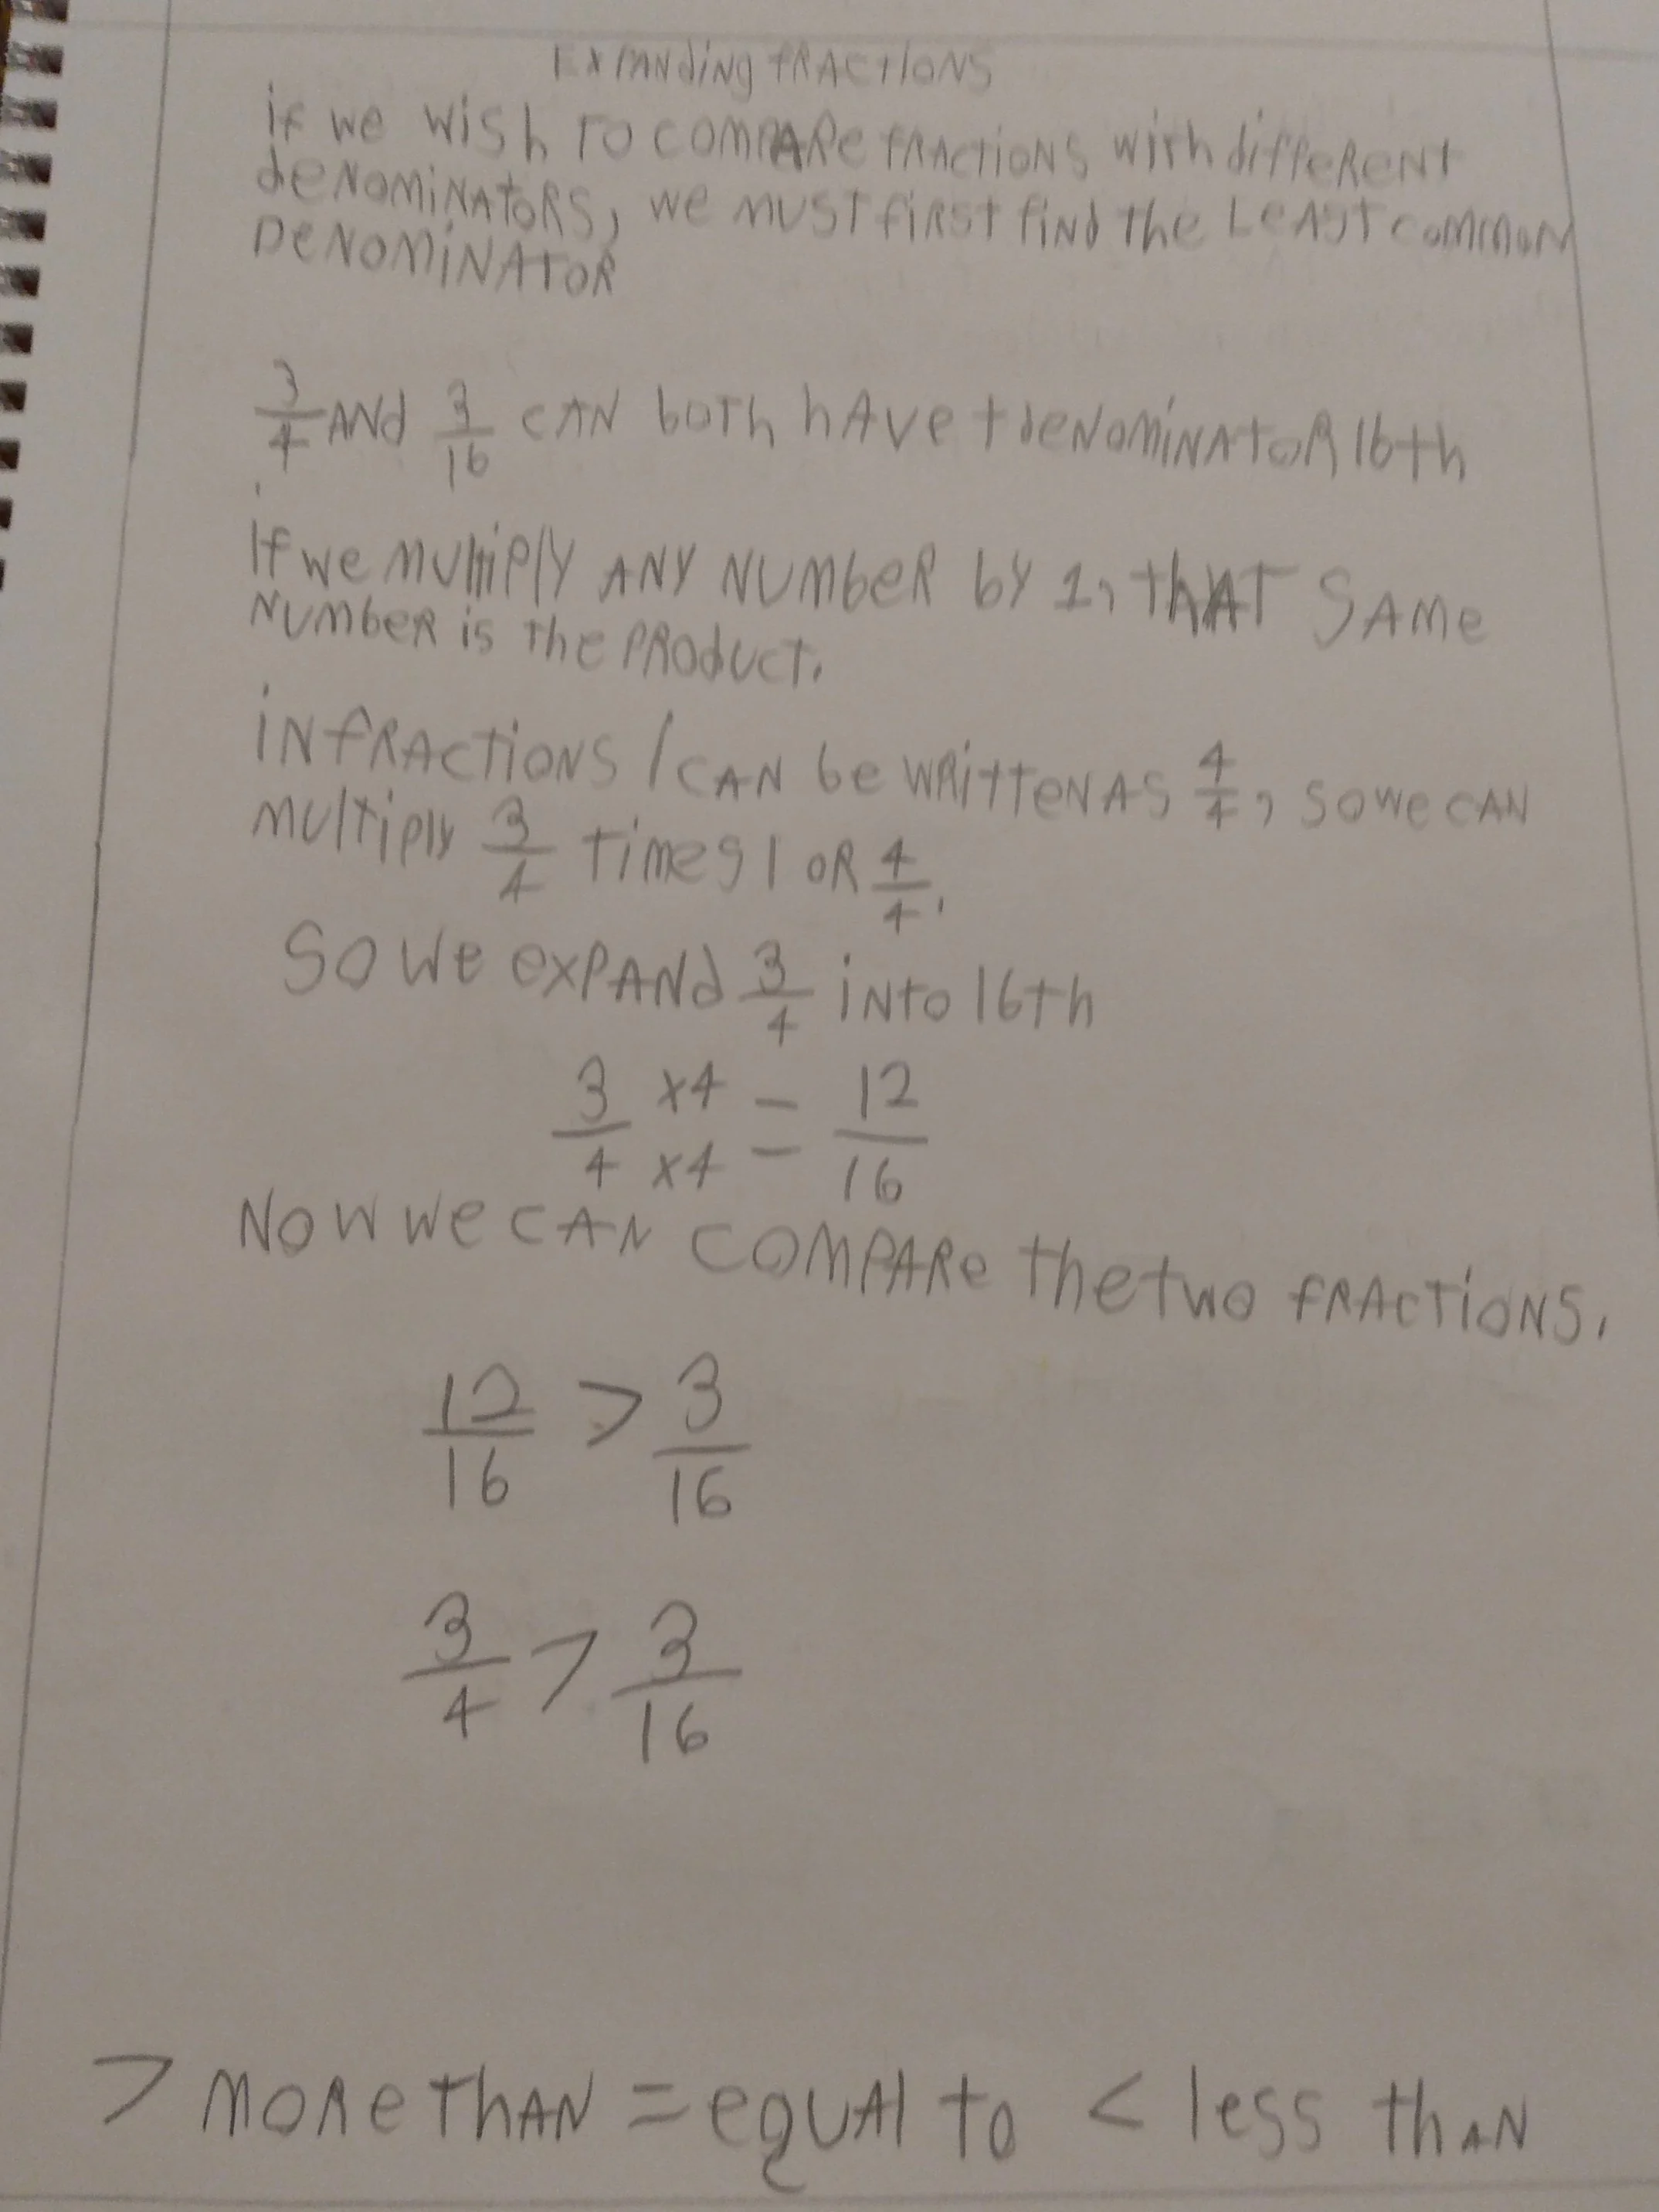 Expanding fractions
if we wish to compare fractions with different
denominators, we must first find the Least common
Denominator
3/4 and 3/16 can both have t denominator 16th
If we multiply any number by 1, that same
number is the product.
in fractions 1 can be written as 4/4, so we can
multiply 3/4 times 1 or 4/4.
So we expand 3/4 into 16th
3/4 x4/x4 = 12/16
Now we can compare the two fractions.
12/16 > 3/16
3/4 > 3/16
> more than = equal to < less than